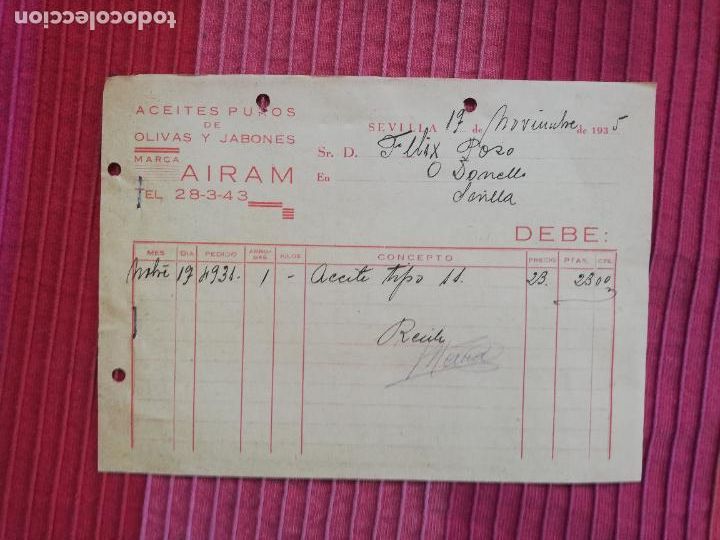 todocoleccion
ACEITES PUROS
DE
OLIVAS Y JABONES
MARCA
AIRAM
TEL. 28-3-43
SEVILLA 17 de Noviembre de 1935
Sr. D. Felix Poso
En O Donell
Sevilla
DEBE:
MES DIA PEDIDO ARRO-BAS KILOS CONCEPTO PRECIO PTAS. CTS.
Nobre 17 4931 - 1 - Aceite tipo 11. 23. 23 00
Recibi